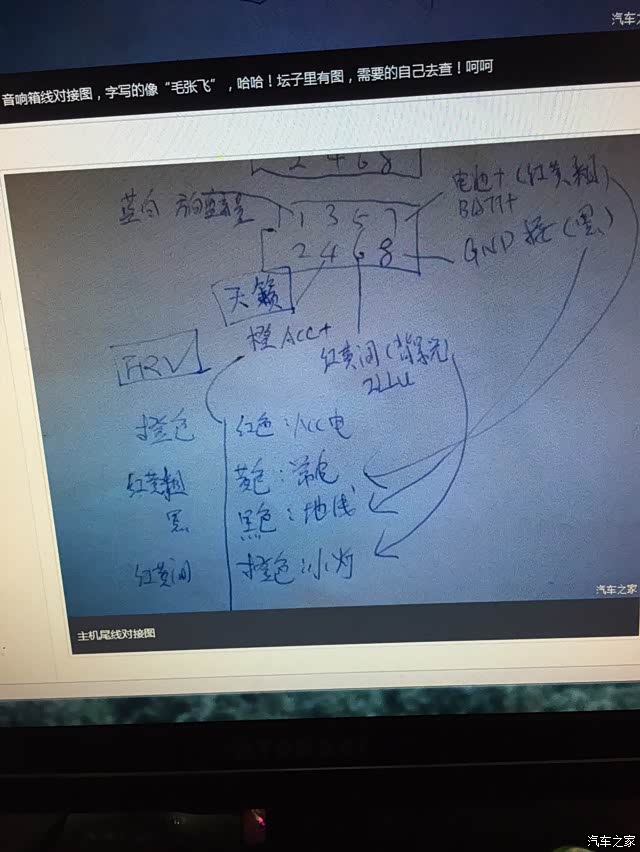 汽车之家
音响箱线对接图，字写的像“毛张飞”，哈哈！坛子里有图，需要的自己去查！呵呵
2 4 6 8
蓝白
1 3 5 7
2 4 6 8
电池+（红黄粗）
BATT+
GND（黑）
天籁
橙ACC+
红黄间（背景光）
ILLU
橙色
红色：ACC电
红黄粗
黄色：常电
黑
黑色：地线
红黄间
橙色：小灯
汽车之家
主机尾线对接图
汽车之家